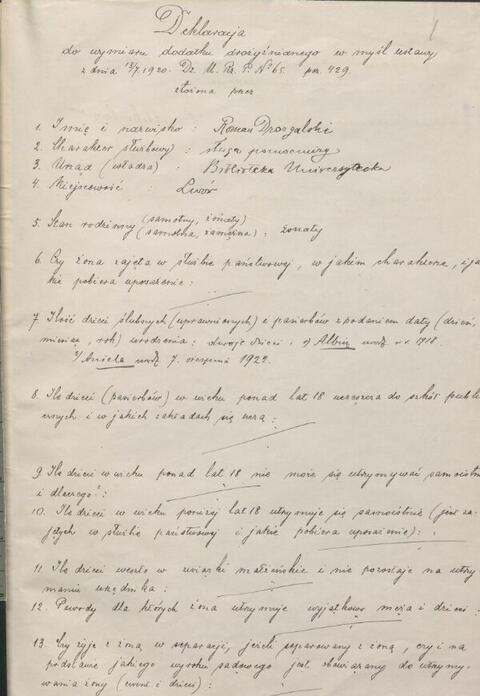 1
Deklaracja
do wymiaru dodatku drożyźnianego w myśl ustawy
z dnia 13/7.1920. Dz. U. Rz. P. No 65. poz. 429
złożona przez
1. Imię i nazwisko : Roman Drozgalski
2. Charakter służbowy : sługa pomocniczy
3. Urząd (władza) : Biblioteka Uniwersytecka
4. Miejscowość : Lwów
5. Stan rodzinny (samotny, żonaty)
(samotna, zamężna) : żonaty
6. Czy żona zajęta w służbie państwowej, w jakim charakterze, i ja-
kie pobiera uposażenie :
7. Ilość dzieci ślubnych (uprawnionych) i pasierbów z podaniem daty (dzień,
miesiąc, rok) urodzenia : dwoje dzieci, 1) Albin urodz. w r. 1918.
2/ Aniela urodz. 7. sierpnia 1922.
8. Ile dzieci (pasierbów) w wieku ponad lat 18 uczęszcza do szkół publi-
cznych i w jakich zakładach się uczą :
9. Ile dzieci w wieku ponad lat 18 nie może się utrzymywać samoistnie
i dlaczego :
10. Ile dzieci w wieku poniżej lat 18 utrzymuje się samoistnie (jest za-
jętych w służbie państwowej i jakie pobiera uposażenie) :
11. Ile dzieci weszło w związki małżeńskie i nie pozostaje na utrzy-
maniu urzędnika :
12. Powody dla których żona utrzymuje wyjątkowo męża i dzieci :
13. Czy żyje z żoną w separacji, jeżeli separowany z żoną, czy i na
podstawie jakiego wyroku sądowego jest obowiązany do utrzymy-
wania żony (ewent. i dzieci) :